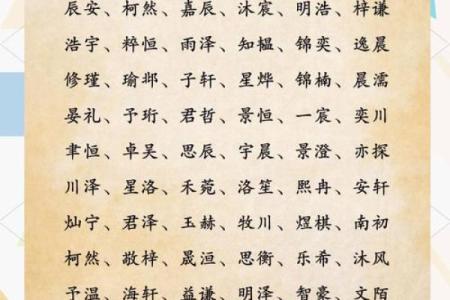 辰安、柯然、嘉辰、沐宸、明浩、梓谦
浩宇、粹恒、雨泽、知韫、锦奕、逸晨
修瑾、瑜邶、子轩、星烨、锦楠、晨濡
晏礼、予珩、君哲、景恒、一宸、奕川
聿恒、卓昊、思辰、宇晨、景澄、亦探
川泽、星洛、禾菀、洛笙、熙冉、安轩
灿宁、君泽、玉赫、牧川、煜棋、南初
柯然、敬梓、晟洹、思衡、乐希、沐风
予温、海轩、益谦、明泽、智豪、文陌